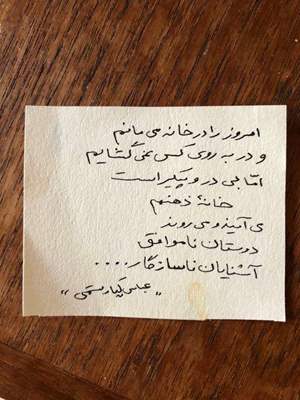 امروز را در خانه می مانم
و در به روی کس نمی گشایم
امّا بی در و پیکر است
خانهٔ ذهنم
می آیند و می روند
دوستان ناموافق
آشنایان ناسازگار....
"عباس کیارستمی"